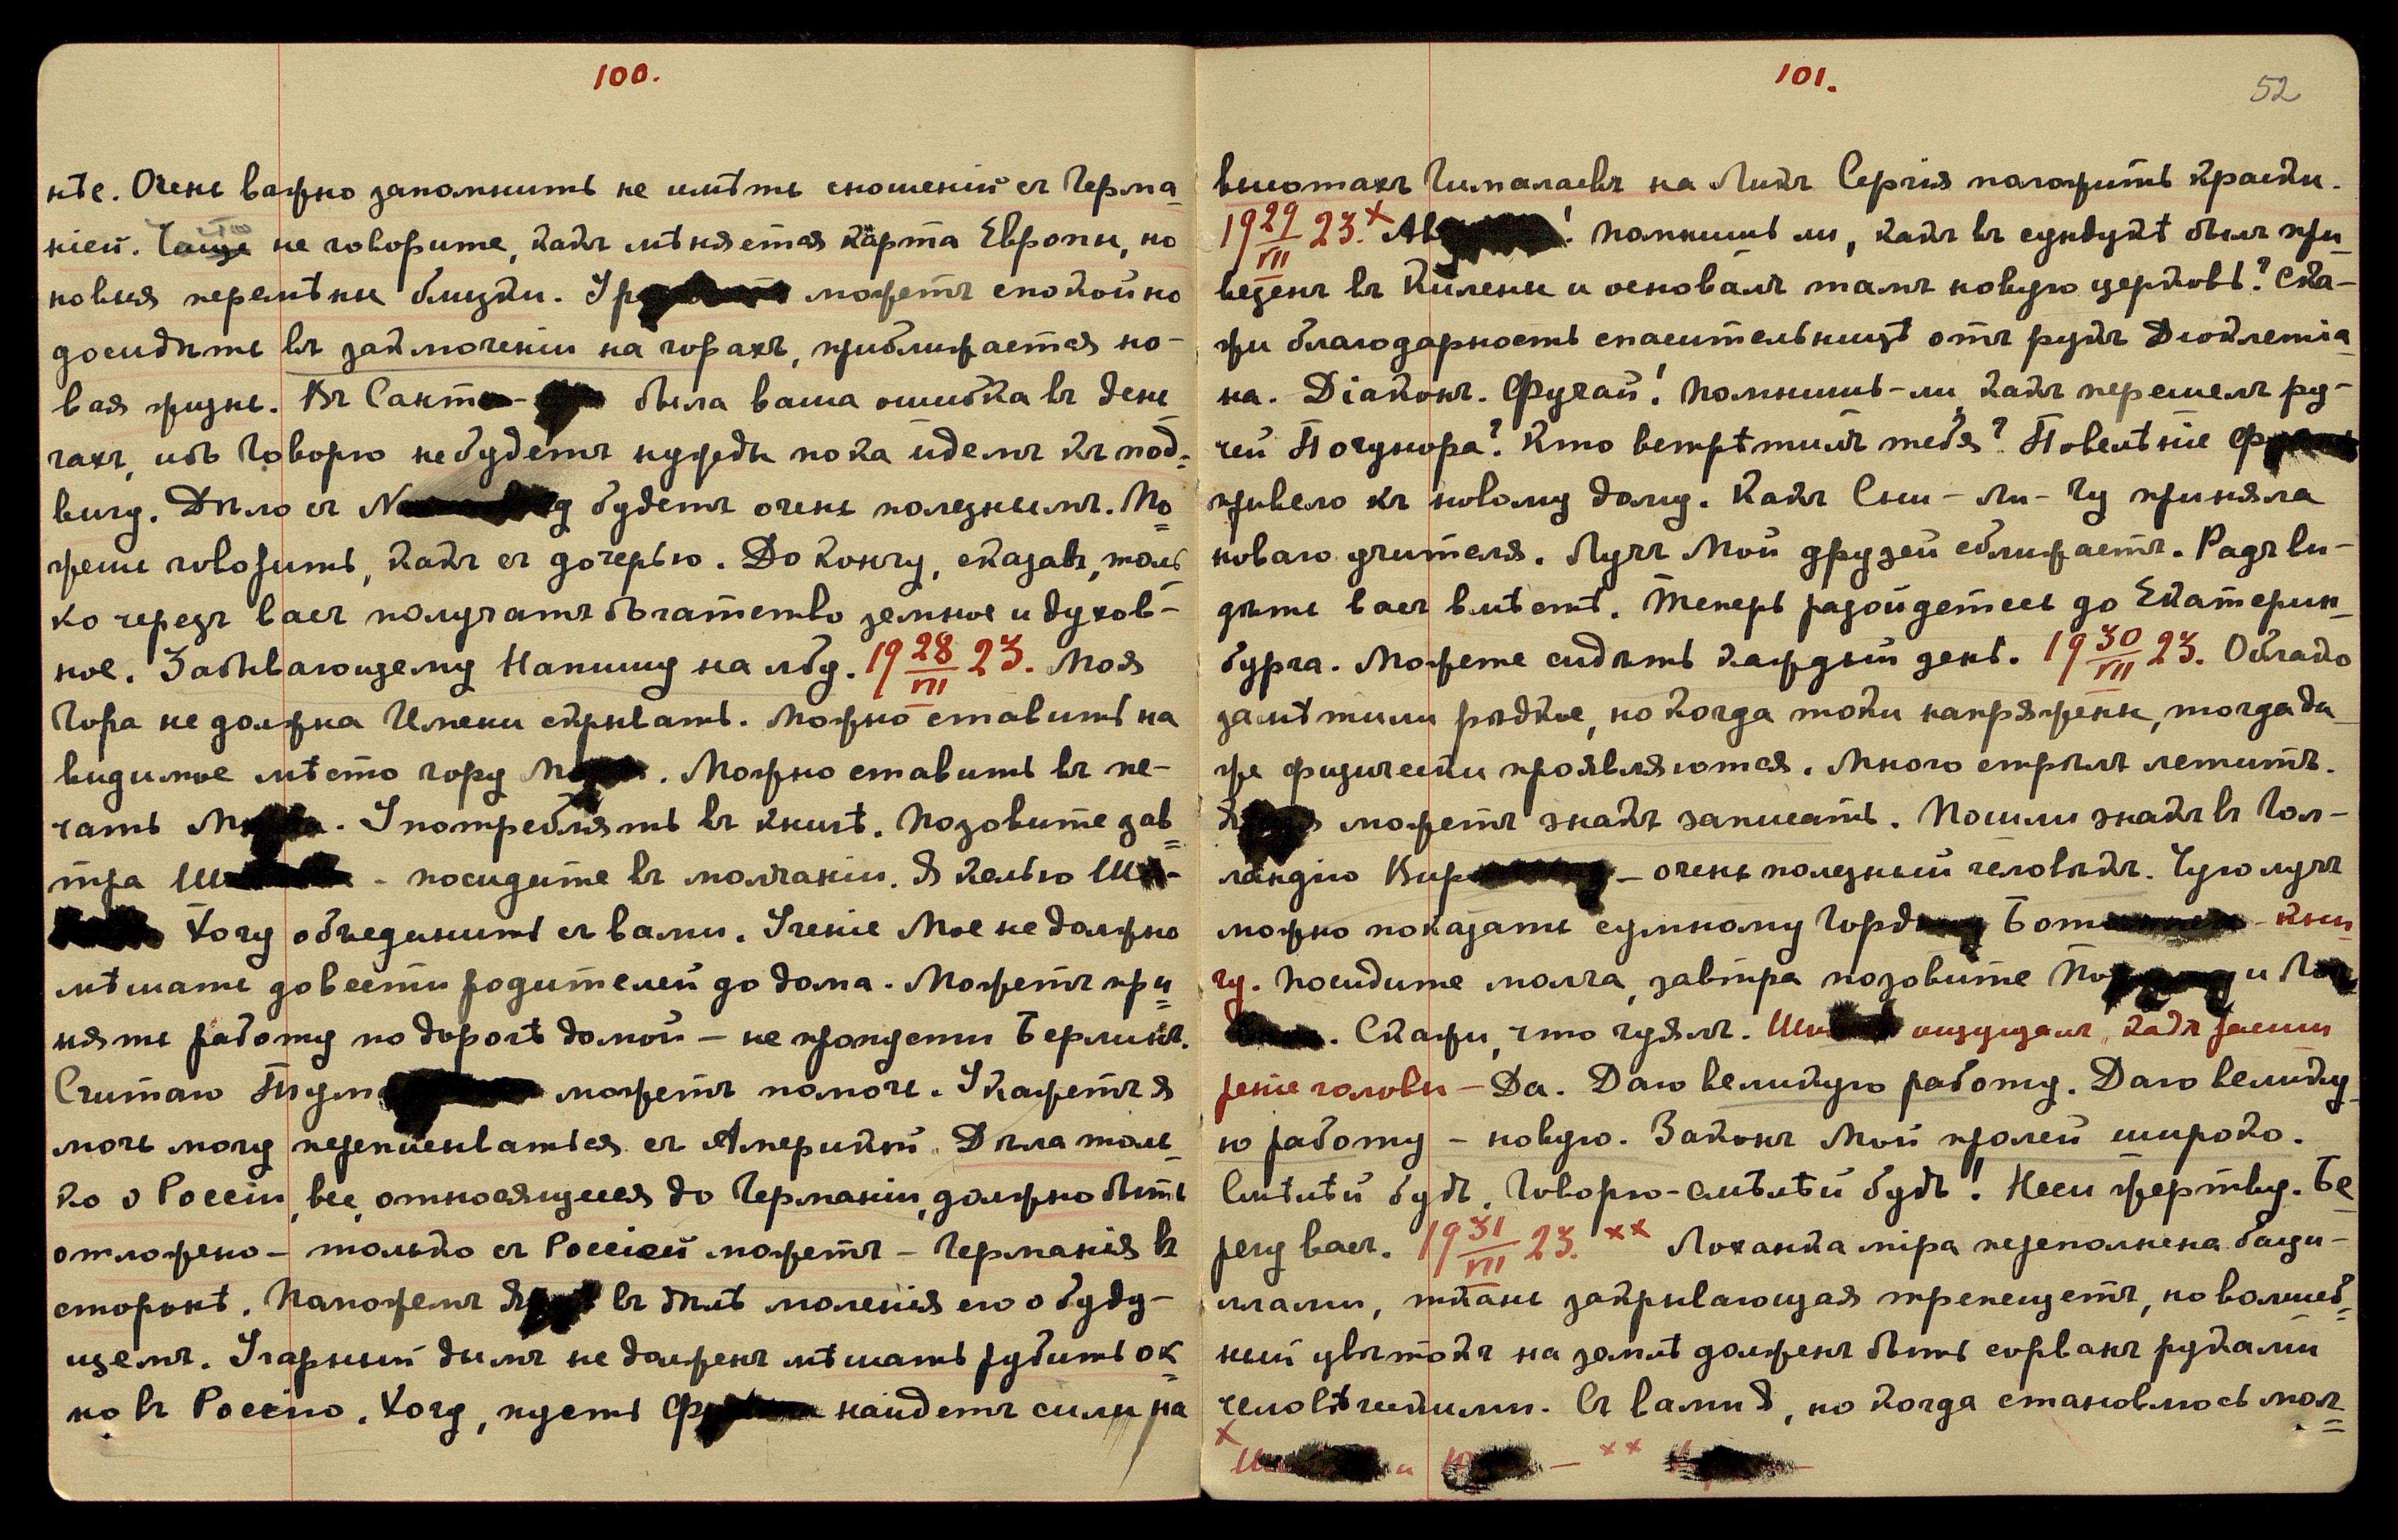 100.
нѣе. Очень важно запомнить не имѣть сношеній съ Герма
ніей. не говорите, какъ мѣняется карта Европы, но
новыя перемѣны близки. можетъ спокойно
досидѣть въ заключеніи на горахъ, приближается но-
вая жизнь. Въ Санта- была ваша ошибка въ день
гахъ, ибо Говорю не будетъ нужды пока идемъ къ под-
вигу. Дѣло съ будетъ очень полезнымъ. Мо
жешь говорить, какъ съ дочерью. Докончу, сказавъ, толь
ко черезъ васъ получатъ богатство земное и духов-
ное. Забывающему Напишу на лбу. 19 28/VII 23. Моя
Гора не должна Имени скрывать. Можно ставить на
видимое мѣсто гору. Можно ставить въ пе-
чать. Употреблять въ книгѣ. Позовите зав
тра - посидите въ молчаніи. Я келью
Хочу объединить съ вами. Ученіе Мое не должно
мѣшать довести родителей до дома. Можетъ при
нять работу по дорогѣ домой - не пропусти Берлинъ.
Считаю можетъ помочь. Укажется
мочь могу переписываться съ Америкой. Дѣла толь
ко о Россіи, все, относящееся до Германіи, должно быть
отложено - только съ Россіей можетъ - Германія въ
сторонѣ. Поможемъ въ дѣлѣ моленія его о буду-
щемъ. Угарный дымъ не долженъ мѣшать рубить ок
но въ Россію. Хочу, пусть найдетъ силы на
101.
52
высотахъ Гималаевъ на Ликъ Сергія положить краски.
19 29/VII 23. x ! Помнишь ли, какъ въ сундукѣ былъ при
везенъ въ и основалъ тамъ новую церковь? Ска-
жи благодарность спасительницѣ отъ рукъ Діоклетіа
на. Діаконъ. Фучай! Помнишь-ли, какъ перешелъ ру-
чей Погунора? Кто встрѣтилъ тебя? Повелѣніе
привело къ новому дому. Какъ Сни-ли-Гу приняла
новаго учителя. Лучъ Мой друзей сближаетъ. Радъ ви-
дѣть васъ вмѣстѣ. Теперь разойдетесь до Екатерин
бурга. Можете сидѣть каждый день. 19 30/VII 23. Облако
замѣтили рѣдкое, но когда токи напряжены, тогда да
же физически проявляются. Много стрѣлъ летитъ.
можетъ знакъ записать. Пошли знакъ въ Гол-
ландію - очень полезный человѣкъ. Чую лучъ
можно показать сумному - кни
гу. Посидите молча, завтра позовите и
. Скажи, что чуялъ. ощущалъ, какъ расши
реніе головы - Да. Даю великую работу. Даю велику
ю работу - новую. Законъ Мой пролей широко.
Смѣлѣй будь, Говорю - смѣлѣй будь! Неси жертву. Бе
регу васъ. 19 31/VII 23. xx Лоханка міра переполнена бацы-
ллами, ткань закрывающая трепещетъ, но волшеб
ный цвѣтокъ на землѣ долженъ быть сорванъ руками
человѣческими. Съ вами Я, но когда становлюсь мол
x и - xx